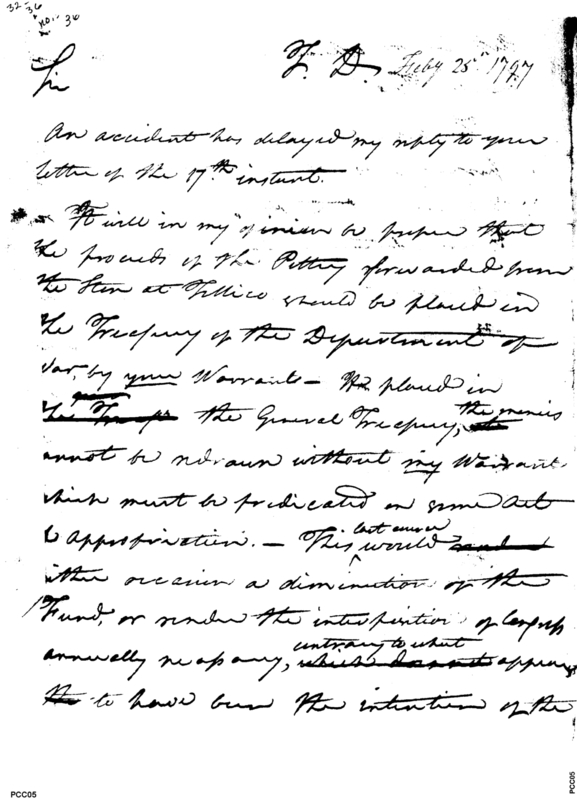 32-36
no. 36
Sir
T. D. Feby 25th 1797
An accident has delayed my reply to your
letter of the 17th instant.
It will in my opinion be proper that
the proceeds of the Peltry forwarded from
the Store at Tellico should be placed in
the Treasury of the Department of
War, by your Warrant — If placed in
the General Treasury, the monies
annot be redrawn without my Warrant
which must be predicated on some Act
Appropriation. — This last course would
ither occasion a diminution of the
Fund, or render the interposition of Congress
annually necessary, contrary to what appears
to have been the intention of the
PCC05
PCC05